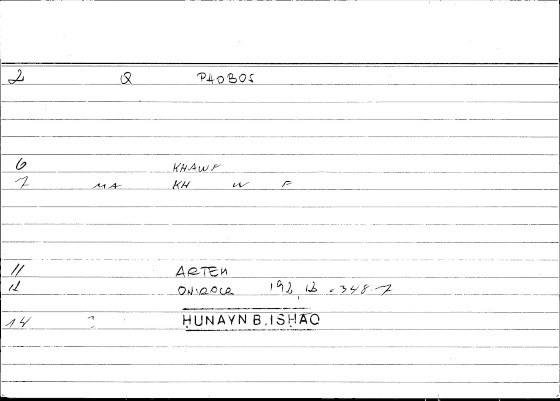 2 Q PHOBOS
6 KHAWF
7 MA KH W F
11 ARTEM
12 ONIROCR 192, 12 = 348 7
14 HUNAYN B. ISHAQ